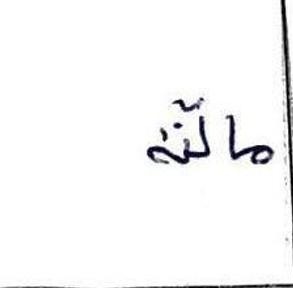 مالّنه